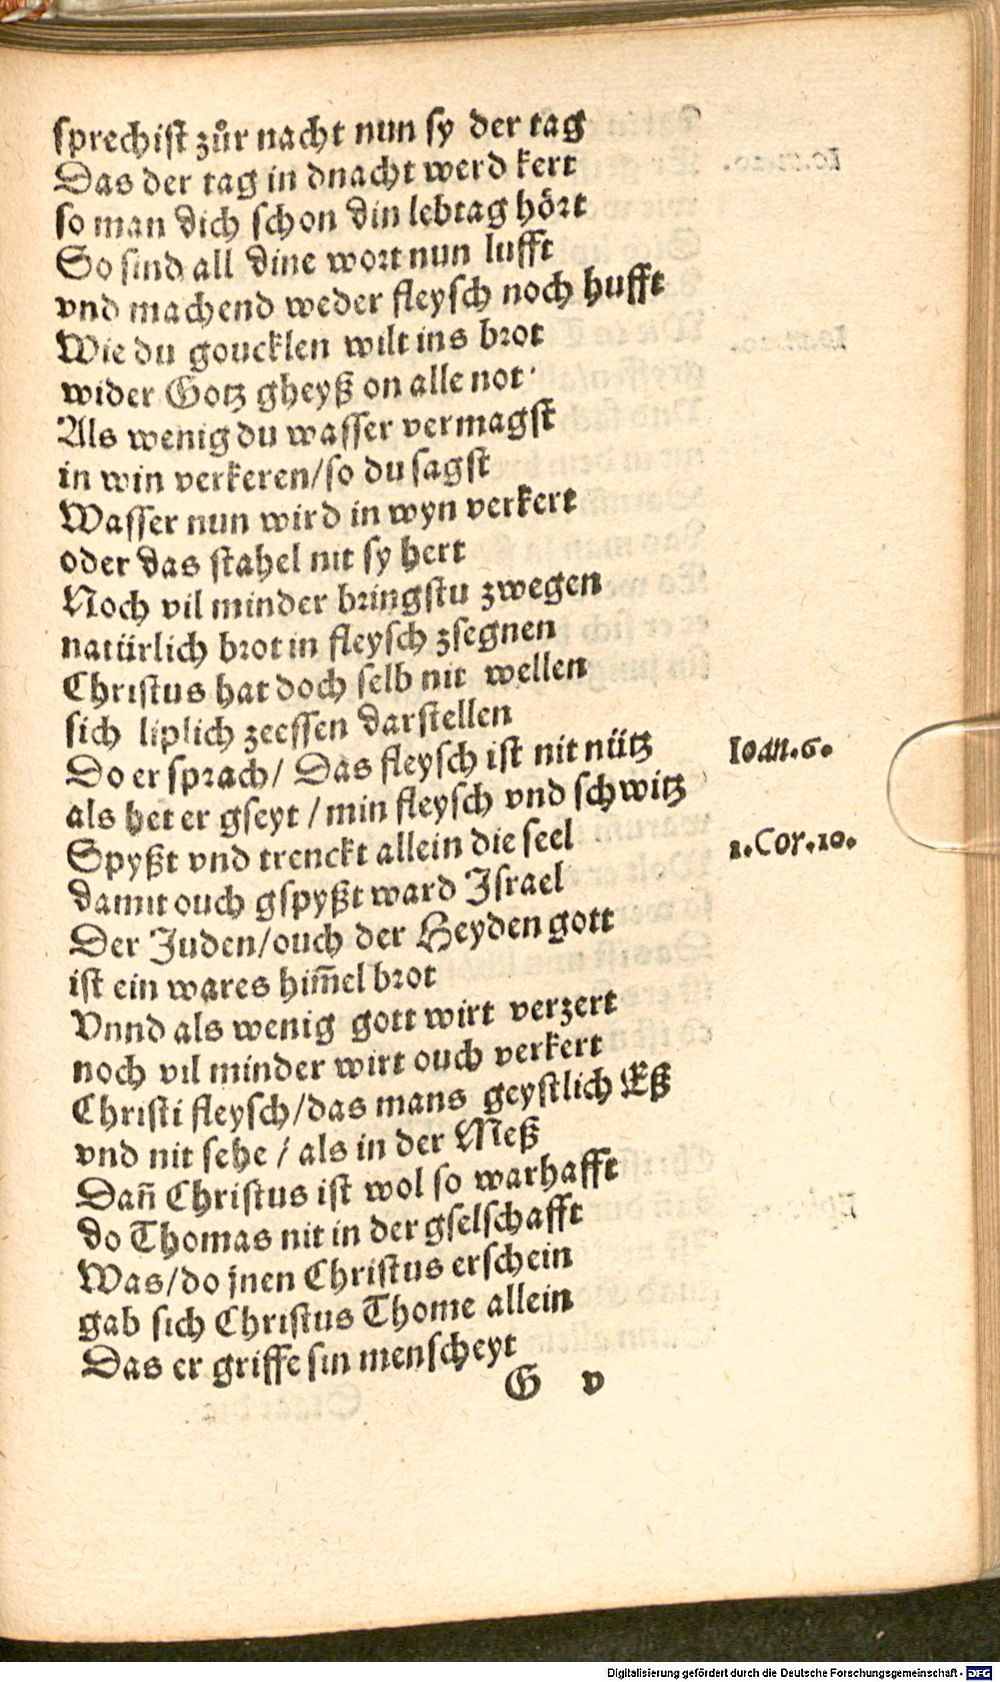 sprechist zůr nacht nun sy der tag
Das der tag in dnacht werd kert
so man dich schon din lebtag hört
So sind all dine wort nun lufft
vnd machend weder fleysch noch hufft
Wie du goucklen wilt ins brot
wider Gotz gheyß on alle not
Als wenig du wasser vermagst
in win verkeren/so du sagst
Wasser nun wird in wyn verkert
oder das stahel nit sy hert
Noch vil minder bringstu zwegen
natürlich brot in fleysch zsegnen
Christus hat doch selb nit wellen
sich liplich zeessen darstellen
Do er sprach/ Das fleysch ist nit nütz Ioan.6.
als het er gseyt/min fleysch vnd schwitz
Spyßt vnd trenckt allein die seel 1.Cor.10.
damit ouch gspyßt ward Israel
Der Juden/ouch der Heyden gott
ist ein wares him̄el brot
Vnnd als wenig gott wirt verzert
noch vil minder wirt ouch verkert
Christi fleysch/das mans geystlich Eß
vnd nit sehe/als in der Meß
Dañ Christus ist wol so warhafft
do Thomas nit in der gselschafft
Was/do jnen Christus erschein
gab sich Christus Thome allein
Das er griffe sin menscheyt
G v
Digitalisierung gefördert durch die Deutsche Forschungsgemeinschaft - DFG